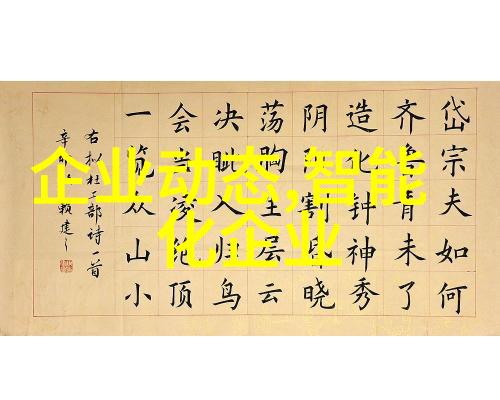 企业动态,智能
化企业
岱宗夫如何
齐鲁青未了
造化钟神秀
阴阳割昏晓
荡胸生层云
决眦入归鸟
会当凌绝顶
一览众山小
右拟杜工部诗一首
辛 赖建